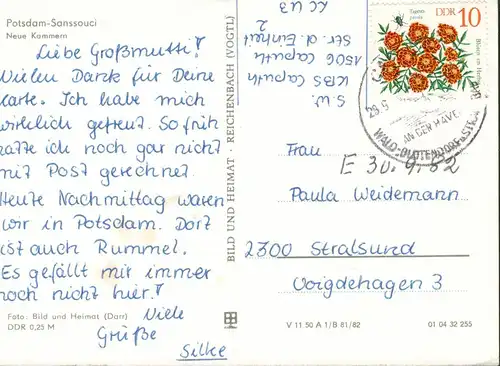 Potsdam-Sanssouci
Neue Kammern
Liebe Großmutti!
Vielen Dank für Deine
Karte. Ich habe mich
wirklich gefreut. So früh
hatte ich noch gar nicht
mit Post gerechnet.
Heute Nachmittag waren
wir in Potsdam. Dort
ist auch Rummel.
Es gefällt mir immer
noch nicht hier!
Viele
Grüße
Silke
Foto: Bild und Heimat (Darr)
DDR 0,25 M
BILD UND HEIMAT · REICHENBACH (VOGTL)
S.W.
KBS Caputh
1506 Caputh
Str. d. Einheit
2
DDR 10
Tagetes
29.9
AN DER HAVEL
Frau
E 30.9.82
Paula Weidemann
2300 Stralsund
Voigdehagen 3
V 11 50 A 1/B 81/82
01 04 32 255